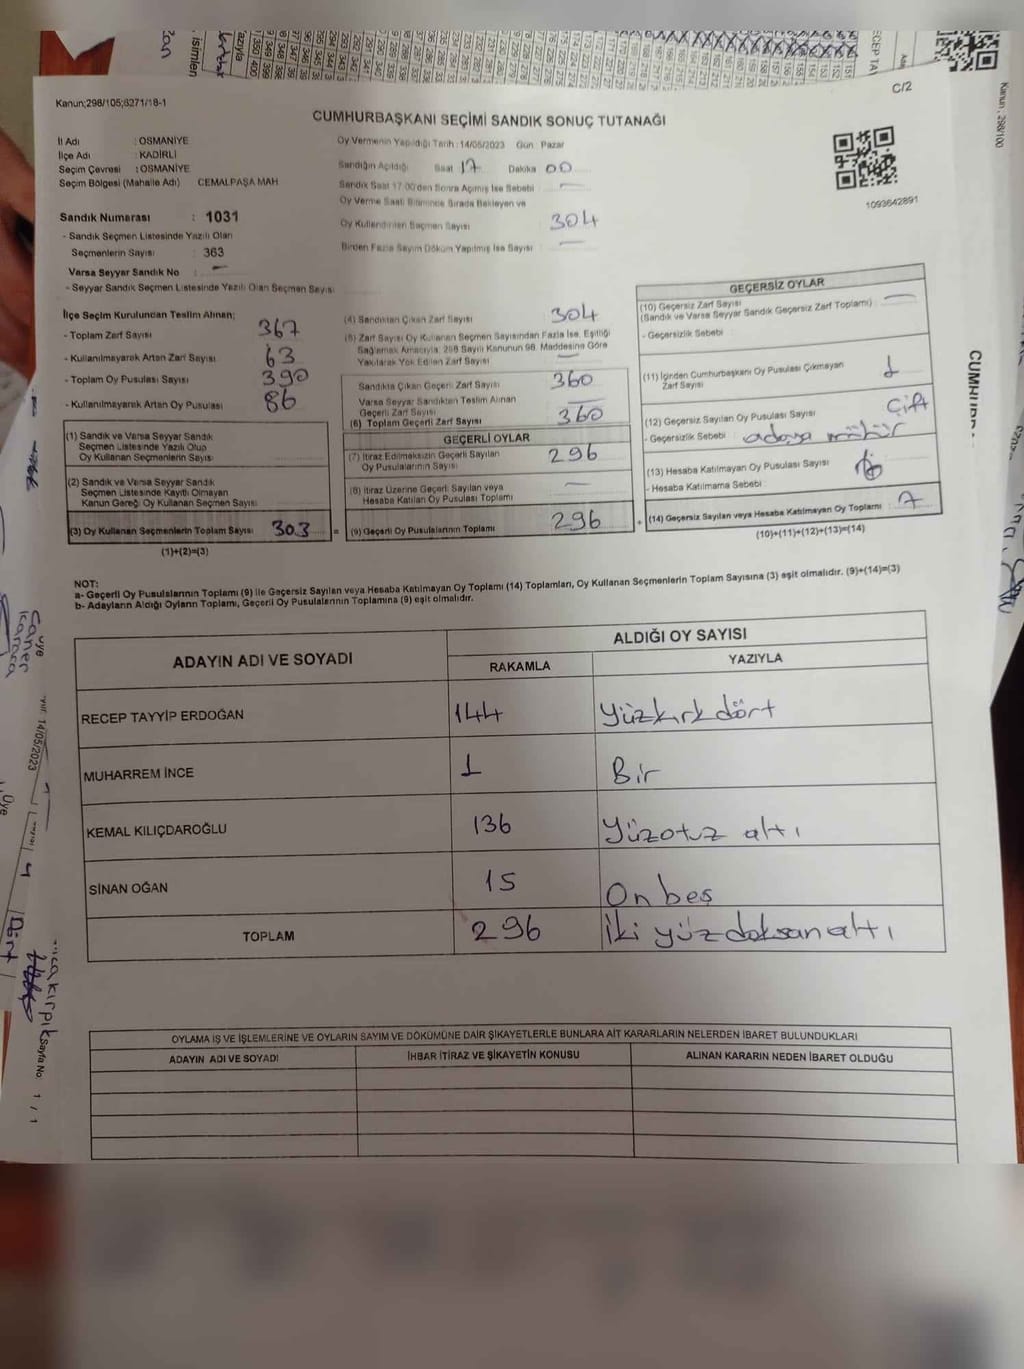 C/2
Kanun;298/105;6271/18-1
CUMHURBAŞKANI SEÇİMİ SANDIK SONUÇ TUTANAĞI
İl Adı : OSMANİYE
İlçe Adı : KADİRLİ
Seçim Çevresi : OSMANİYE
Seçim Bölgesi (Mahalle Adı) CEMALPAŞA MAH
Sandık Numarası : 1031
- Sandık Seçmen Listesinde Yazılı Olan
Seçmenlerin Sayısı : 363
Varsa Seyyar Sandık No : —
- Seyyar Sandık Seçmen Listesinde Yazılı Olan Seçmen Sayısı
Oy Vermenin Yapıldığı Tarih : 14/05/2023 Gün Pazar
Sandığın Açıldığı Saat 17 Dakika 00
Sandık Saat 17:00'den Sonra Açılmış İse Sebebi —
Oy Verme Saati Bitiminde Sırada Bekleyen ve
Oy Kullandırılan Seçmen Sayısı 304
Birden Fazla Sayım Döküm Yapılmış İse Sayısı —
1093642891
İlçe Seçim Kurulundan Teslim Alınan;
- Toplam Zarf Sayısı 367
- Kullanılmayarak Artan Zarf Sayısı 63
- Toplam Oy Pusulası Sayısı 390
- Kullanılmayarak Artan Oy Pusulası 86
(1) Sandık ve Varsa Seyyar Sandık
Seçmen Listesinde Yazılı Olup
Oy Kullanan Seçmenlerin Sayısı
(2) Sandık ve Varsa Seyyar Sandık
Seçmen Listesinde Kayıtlı Olmayan
Kanun Gereği Oy Kullanan Seçmen Sayısı
(3) Oy Kullanan Seçmenlerin Toplam Sayısı 303
(1)+(2)=(3)
(4) Sandıktan Çıkan Zarf Sayısı 304
(5) Zarf Sayısı Oy Kullanan Seçmen Sayısından Fazla İse, Eşitliği
Sağlamak Amacıyla; 298 Sayılı Kanunun 98. Maddesine Göre
Yakılarak Yok Edilen Zarf Sayısı —
Sandıkta Çıkan Geçerli Zarf Sayısı 360
Varsa Seyyar Sandıktan Teslim Alınan
Geçerli Zarf Sayısı —
(6) Toplam Geçerli Zarf Sayısı 360
GEÇERLİ OYLAR
(7) İtiraz Edilmeksizin Geçerli Sayılan
Oy Pusulalarının Sayısı 296
(8) İtiraz Üzerine Geçerli Sayılan veya
Hesaba Katılan Oy Pusulası Toplamı —
= (9) Geçerli Oy Pusulalarının Toplamı 296
GEÇERSİZ OYLAR
(10) Geçersiz Zarf Sayısı
(Sandık ve Varsa Seyyar Sandık Geçersiz Zarf Toplamı) —
- Geçersizlik Sebebi :
(11) İçinden Cumhurbaşkanı Oy Pusulası Çıkmayan
Zarf Sayısı 1
(12) Geçersiz Sayılan Oy Pusulası Sayısı Çift
- Geçersizlik Sebebi : adaya mühür
(13) Hesaba Katılmayan Oy Pusulası Sayısı
- Hesaba Katılmama Sebebi
+ (14) Geçersiz Sayılan veya Hesaba Katılmayan Oy Toplamı : 7
(10)+(11)+(12)+(13)=(14)
NOT:
a- Geçerli Oy Pusulalarının Toplamı (9) ile Geçersiz Sayılan veya Hesaba Katılmayan Oy Toplamı (14) Toplamları, Oy Kullanan Seçmenlerin Toplam Sayısına (3) eşit olmalıdır. (9)+(14)=(3)
b- Adayların Aldığı Oyların Toplamı, Geçerli Oy Pusulalarının Toplamına (9) eşit olmalıdır.
ADAYIN ADI VE SOYADI
ALDIĞI OY SAYISI
RAKAMLA YAZIYLA
RECEP TAYYİP ERDOĞAN 144 Yüzkırkdört
MUHARREM İNCE 1 Bir
KEMAL KILIÇDAROĞLU 136 Yüzotuz altı
SİNAN OĞAN 15 On beş
TOPLAM 296 İki yüz doksan altı
OYLAMA İŞ VE İŞLEMLERİNE VE OYLARIN SAYIM VE DÖKÜMÜNE DAİR ŞİKAYETLERLE BUNLARA AİT KARARLARIN NELERDEN İBARET BULUNDUKLARI
ADAYIN ADI VE SOYADI İHBAR İTİRAZ VE ŞİKAYETİN KONUSU ALINAN KARARIN NEDEN İBARET OLDUĞU
Kanun : 298/100
Üye
Caner
14/05/2023
Üye
Dört
Sayfa No 1 / 1